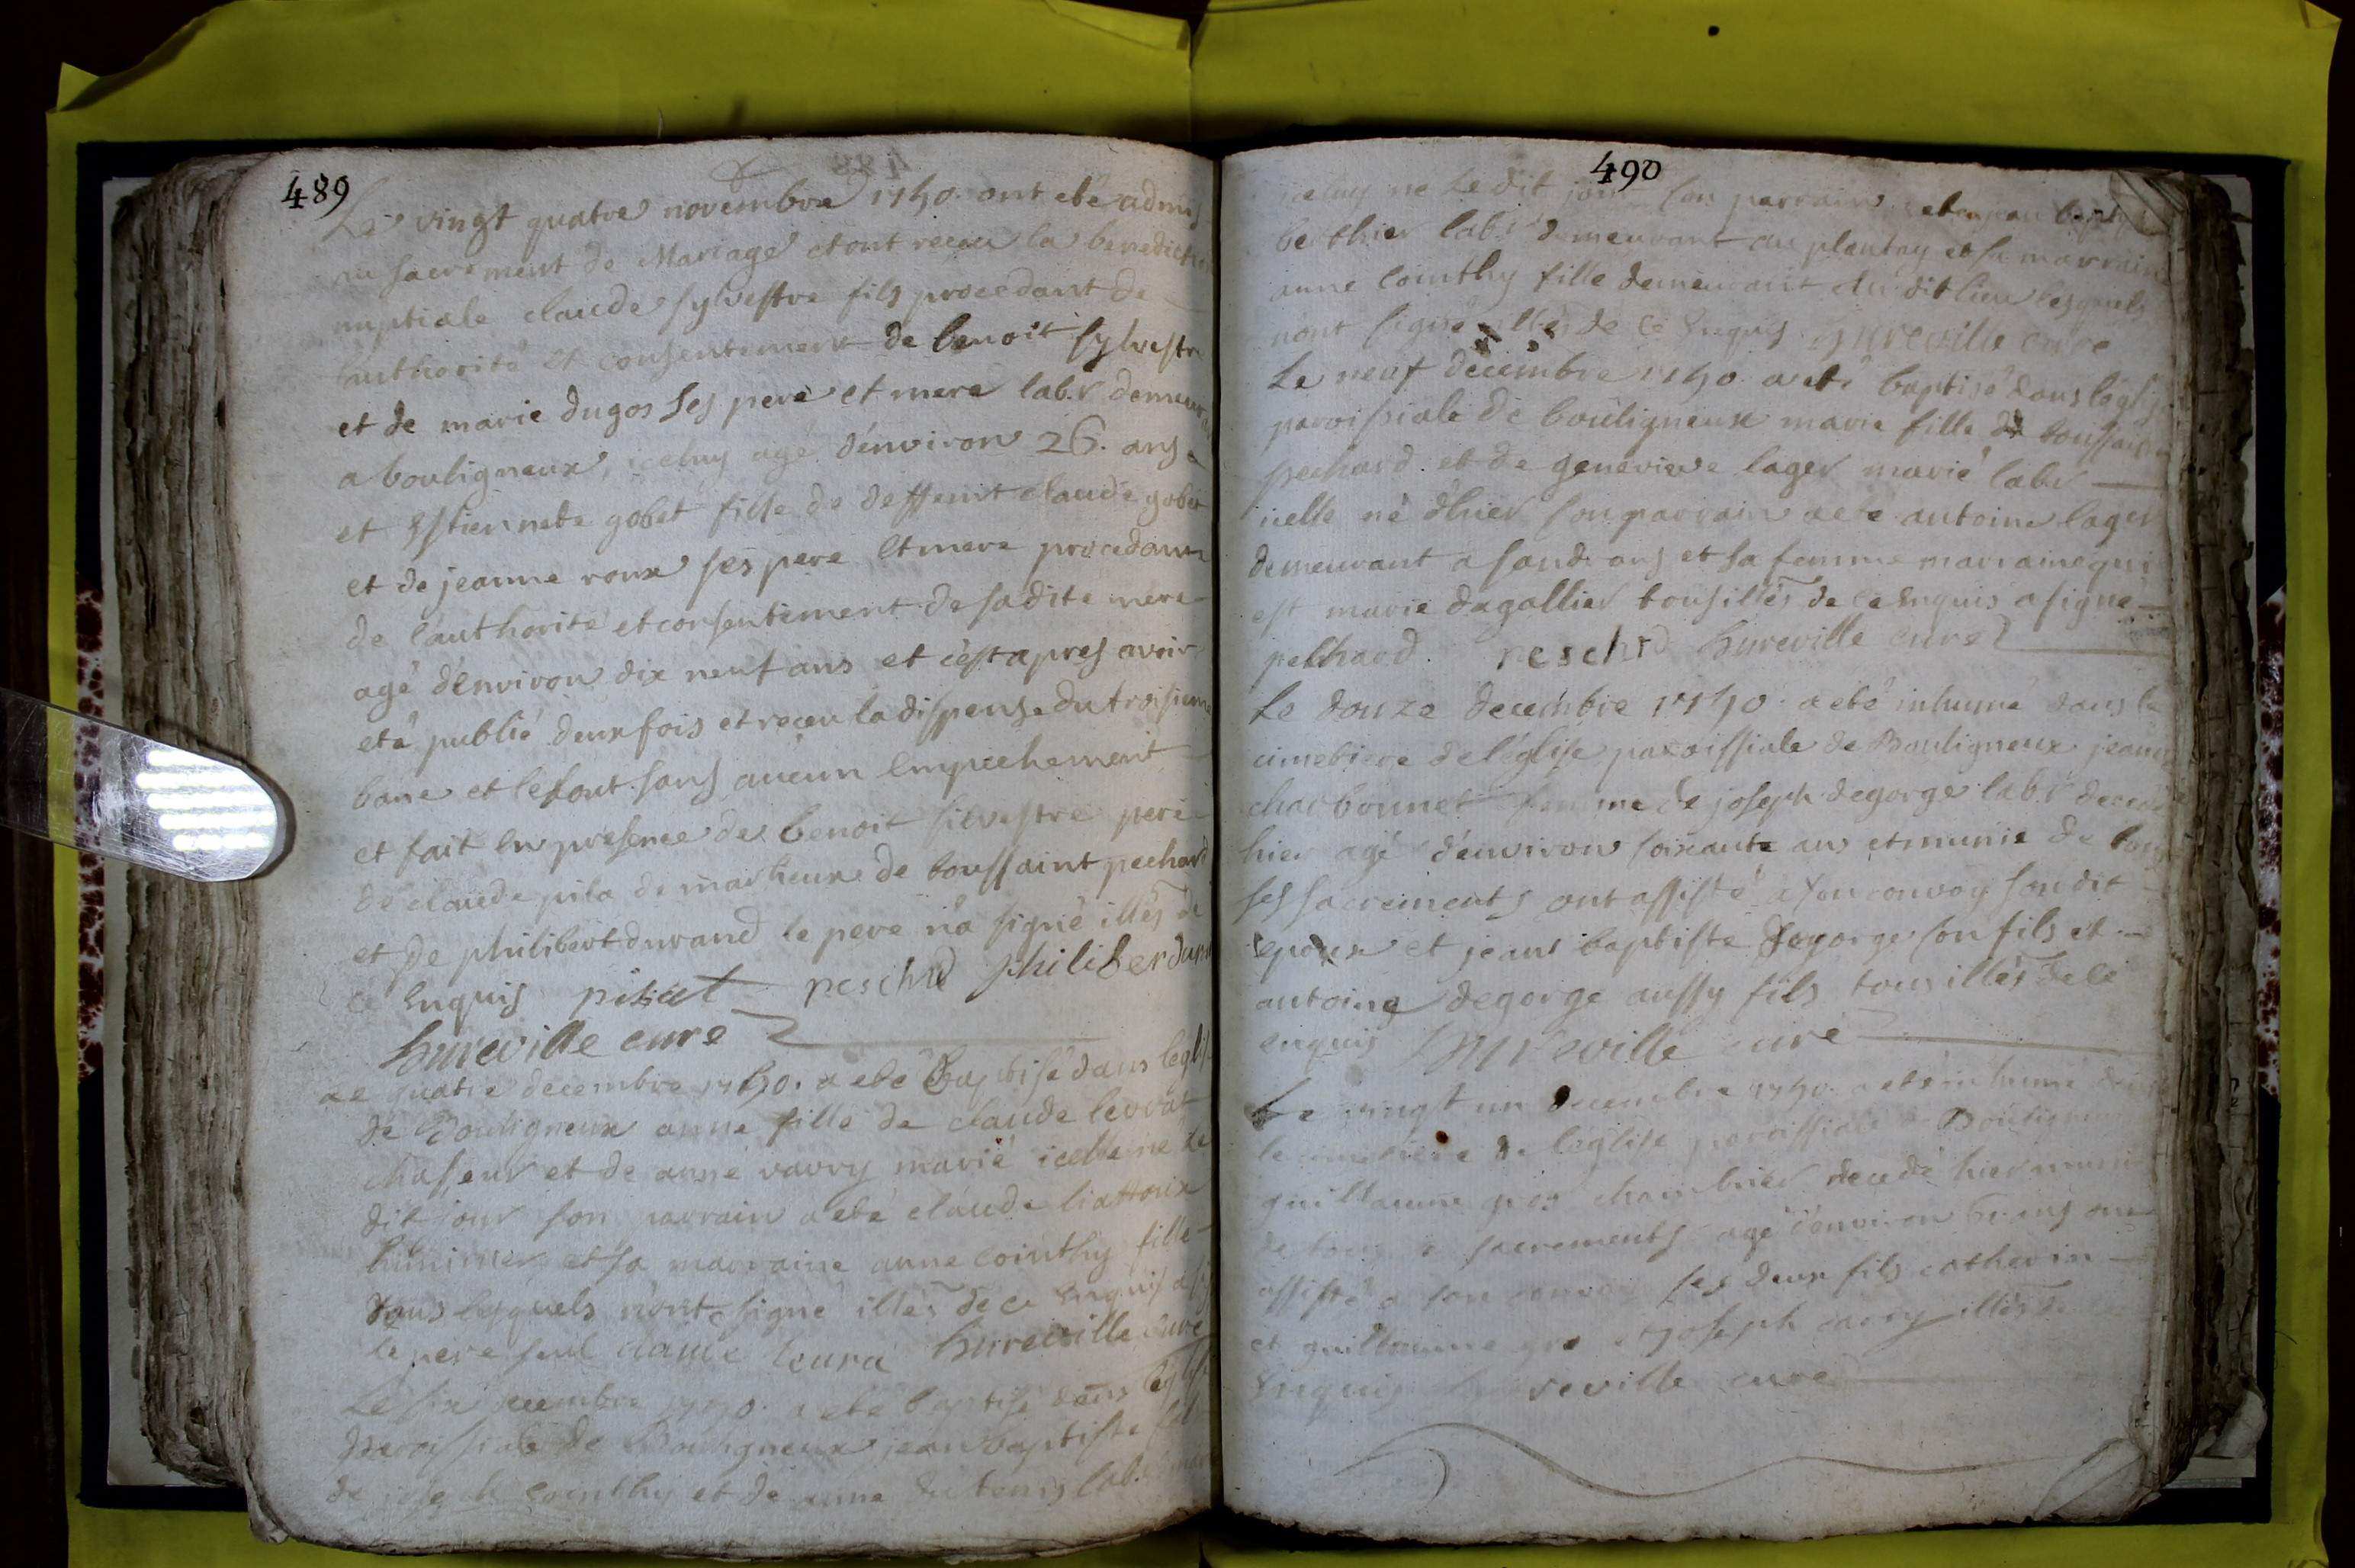 489
Le vingt quatre novembre 1750. ont eté admis
au sacrement de Mariage et ont receu la benediction
nuptiale claude sylvestre fils procedant de
l'authorité et consentement de benoit sylvestre
et de marie dugos ses pere et mere lab.r demeurant
a bouligneux, iceluy agé d'environ 26. ans
et Estiennete gobet fille de deffunt claude gobet
et de jeanne roux ses pere et mere procedante
de l'authorité et consentement de sadite mere
agé d'environ dix neuf ans et c'est apres avoir
eté publié deux fois et receu la dispense du troisieme
banc et le tout sans aucun Empechement
et fait En presence de benoit silvestre pere
de claude de marlieux de toussaint pechard
et de philibert durand le pere n'a signé illés de
ce Enquis peschrd philiber duran
hureville curé
Le quatre decembre 1750. a eté Baptisé dans l'eglise
de Bouligneux anne fille de claude levrat
chaseur et de anne vavry marié icelle né le
dit jour son parrain a eté claude liattoux
et sa marraine anne cointhy fille
tous lesquels n'ont signé illés de ce Enquis a sig
le pere seul claude leura hureville curé
Le six decembre 1750. a eté baptisé dans l'eglise
paroissiale de Bouligneux jean baptiste fils
de joseph cointhy et de anne du tems lab.
490
iceluy né le dit jour son parrain a eté jean baptiste
berthier lab.r demeurant au plantay et sa marraine
anne cointhy fille demeurant du dit lieu lesquels
n'ont signé illés de ce Enquis hureville curé
Le neuf decembre 1750. a eté baptisé dans l'eglise
paroissiale de bouligneux marie fille de toussaint
pechard et de genevieve lager marié labr
icelle né d'hier son parrain a eté antoine lager
demeurant a sandrans et sa femme marraine qui
est marie dagallier tous illés de ce Enquis a signé
pechard. peschrd hureville curé
Le douze decembre 1750. a eté inhumé dans le
cimetiere de l'eglise paroissiale de Bouligneux jeanne
charbonnet femme de joseph degorge lab.r decedé
hier agé d'environ soixante ans et munie de tous
ses sacrements ont assisté a son convoy son dit
epoux et jean baptiste degorge son fils et
antoine degorge aussy fils tous illés de ce
enquis hureville curé
Le vingt un decembre 1750. a eté inhumé dans
le cimetiere de l'eglise paroissiale de Bouligneux
guillaume gros chambrier decedé hier muni
de tous sacrements agé d'environ ans ont
assisté a son convoy ses deux fils catherin
et guillaume gros et joseph vavry illés de ce
Enquis hureville curé